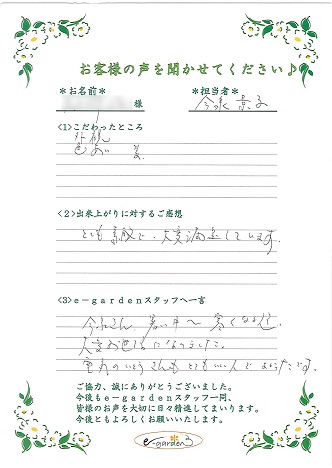 お客様の声を聞かせてください♪
＊お名前＊ ＊担当者＊
様
<1>こだわったところ
外観
色あい
<2>出来上がりに対するご感想
とても素敵で、大変満足しています。
<3>e－gardenスタッフへ一言
今泉さん、暑い中～寒くなる迄、
大変お世話になりました。
とてもいい人で よかったです。
ご協力、誠にありがとうございました。
今後もe－gardenスタッフ一同、
皆様のお声を大切に日々精進してまいります。
今後ともよろしくお願いいたします。
e-garden